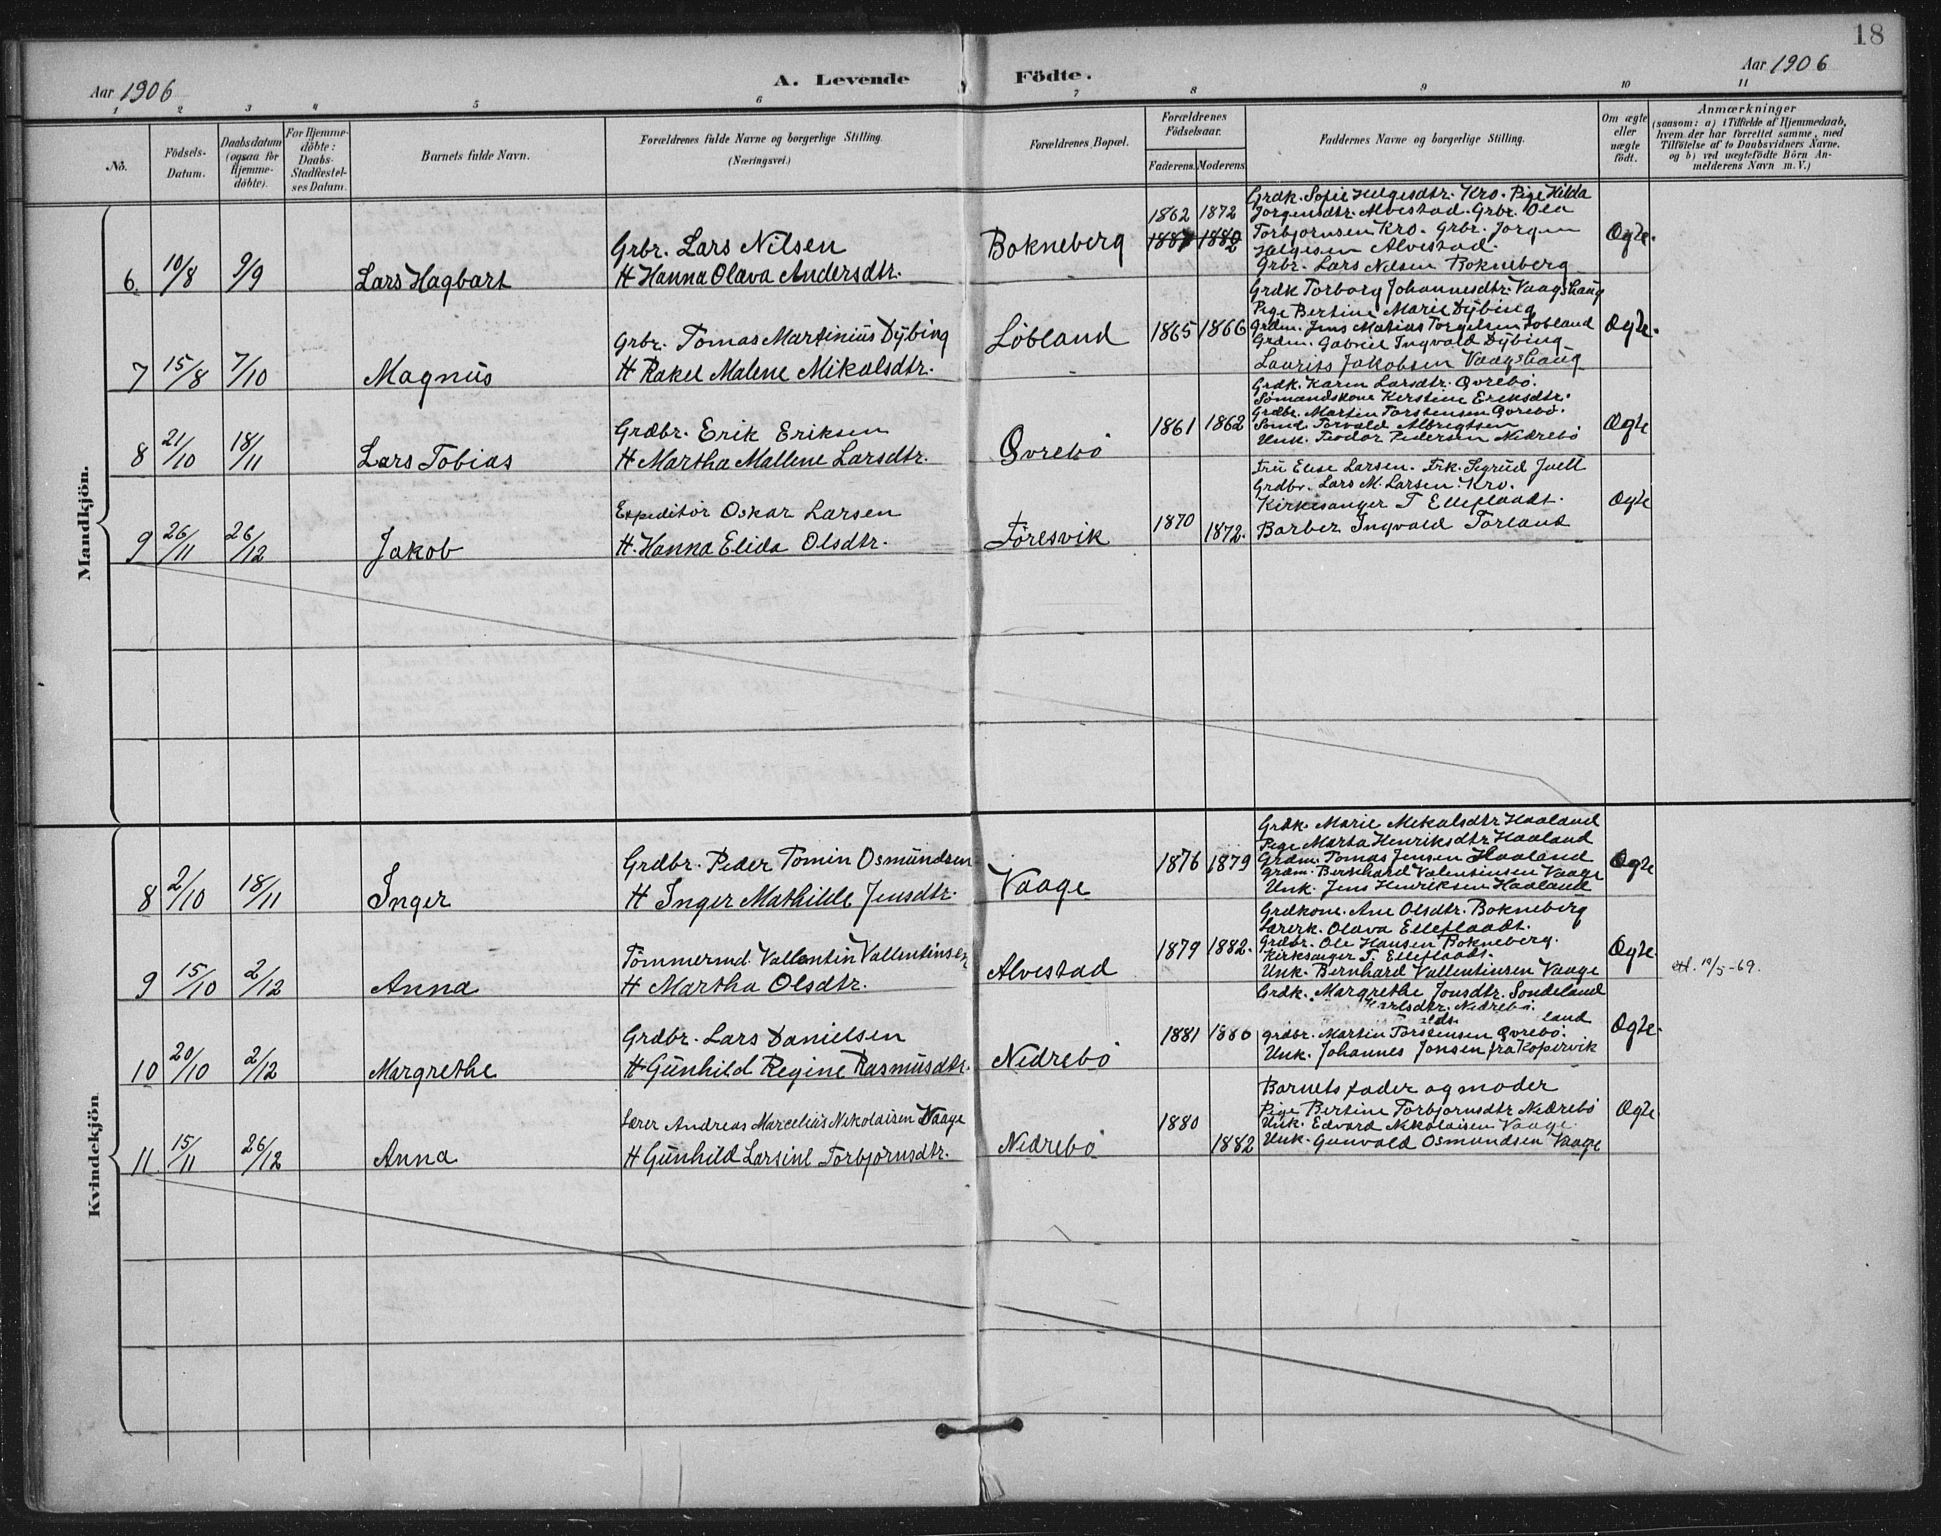 18
Aar 1906
A. Levende Födte.
Aar 1906
1 2 3 4 5 6 7 8 9 10 11
No.
Födsels-Datum.
Daabsdatum (ogsaa for Hjemme-döbte).
For Hjemme-döbte: Daabs-Stadfæstel-ses Datum.
Barnets fulde Navn.
Forældrenes fulde Navne og borgerlige Stilling.
(Næringsvei.)
Forældrenes Bopæl.
Forældrenes Födselsaar.
Faderens. Moderens.
Faddernes Navne og borgerlige Stilling.
Om ægte eller uægte födt.
Anmærkninger
(saasom: a) i Tilfælde af Hjemmedaab, hvem der har forrettet samme, med Tilföielse af to Daabsvidners Navne. og b) ved uægtefödte Börn An-melderens Navn m. V.)
Mandkjön.
6 10/8 9/9 Lars Hagbart
Grbr. Lars Nilsen
H Hanna Olava Andersdtr.
Bokneberg
1862 1872
Grdk. Sofie Helgesdtr. Kro. Pige Hilda
Jorgensdtr. Alvestad. Grbr. Ola
Torbjornsen Kro. Grbr. Jorgen
Helgesen Alvestad.
Grbr. Lars Nilsen Bokneberg
Ægte.
7 15/8 7/10 Magnus
Grbr. Tomas Martinius Dybing
H Rakel Malene Mikalsdtr.
Løbland
1865 1866
Grdk Torborg Johannesdtr. Vaagshaug
Pige Bertine Marie Dybing
Grdm. Jens Matias Torgelsen Løbland
Grdm. Gabriel Ingvald Dybing
Laurits Jakobsen Vaagshaug
Ægte.
8 21/10 18/11 Lars Tobias
Grdbr. Erik Eriksen
H Martha Mallene Larsdtr.
Øvrebö
1861 1862
Grdk. Karin Larsdtr. Øvrebö.
Sømandskone Kerstine Eriksdtr.
Grdbr. Martin Torstensen Øvrebö.
Sømd. Torvald Albregtsen
Unk. Teodor Pedersen Nedrebö
Ægte
9 26/11 26/12 Jakob
Expeditör Oskar Larsen
H. Hanna Elida Olsdtr.
Føresvik
1870 1872.
Fru Elise Larsen. Frk. Sigrud Juell
Grdbr. Lars M. Larsen Kro.
Kirkesanger T Elleflaadt.
Barber Ingvald Torland
Ægte
Kvindekjön
8 2/10 18/11 Inger
Grdbr. Peder Tomin Osmundsen
H Inger Mathilde Jensdtr.
Vaage
1876 1879
Grdk. Marie Mikalsdtr Haaland
Pige Marta Henriksdtr Haaland
Grdm. Tomas Jensen Haaland
Grdm. Bernhard Valentinsen Vaage
Unk. Jens Henriksen Haaland
Ægte
9 15/10 2/12 Anna
Tömmermd. Vallentin Vallentinsen
H Martha Olsdtr.
Alvestad
1879 1882.
Grdkone. Ane Olsdtr. Bokneberg
Lærerk. Olava Elleflaadt.
Grdbr. Ole Hansen Bokneberg.
Kirksanger T. Elleflaadt.
Unk. Bernhard Vallentinsen Vaage
Ægte.
att. 19/5-69.
10 20/10 2/12 Margrethe
Grdbr. Lars Danielsen
H. Gunhild Regine Rasmusdtr.
Nedrebö
1881 1880
Grdk. Margrethe Jonsdtr. Söndeland
Karlsdtr. Nedrebö.
land
Grdbr. Martin Torstensen Øvrebö.
Unk. Johannes Jonsen fra Kopervik
Ægte.
11 15/11 26/12 Anna
Lærer Andreas Marcelius Nikolaisen Vaage
H Gunhild Larsine Torbjörnsdtr.
Nedrebö
1880 1882
Barnets fader og moder
Pige Bertine Torbjornsdtr Nedrebö
Unk. Edvard Nikolaisen Vaage.
Unk. Gunvald Osmundsen Vaage
Ægte